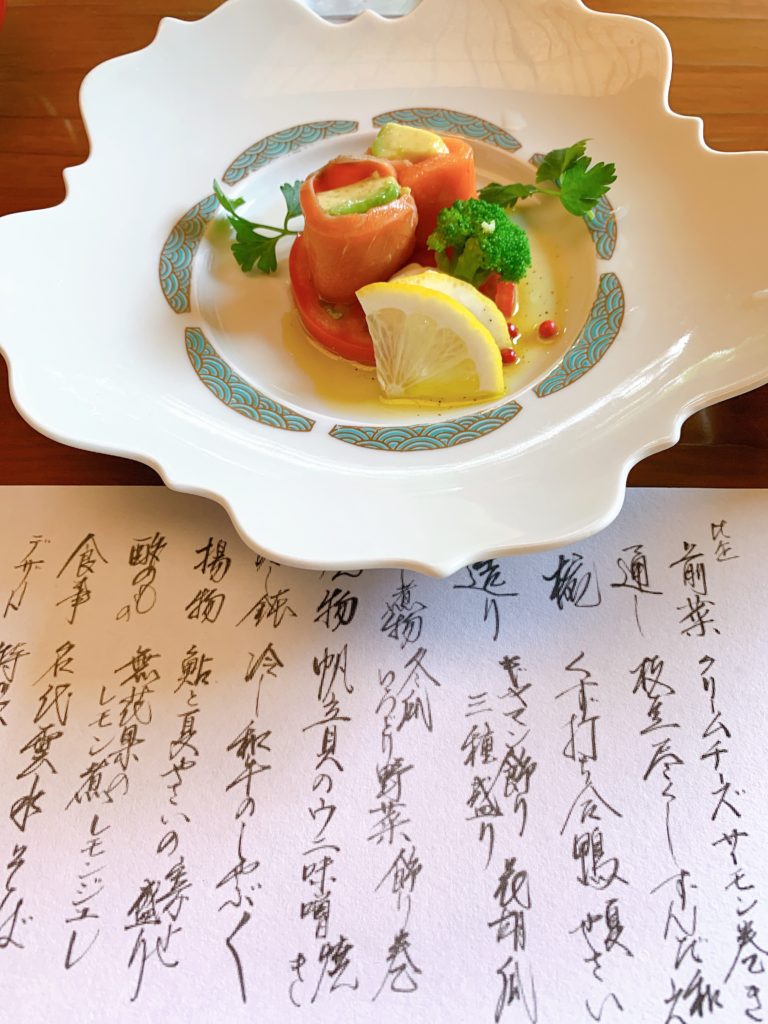 前菜 クリームチーズサーモン巻き
通し 枝豆尽くし ずんだ和
椀 くず打ち合鴨 夏やさい
造り あさマン飾り 花胡瓜
三種盛り
煮物 冬瓜
いろどり野菜 飾り巻
物 帆立貝のウニ味噌焼き
し鉢 冷し和牛のしゃぶしゃぶ
揚物 鮎と夏やさいの寄せ盛り
酢のもの 無花果のレモン煮 レモンジュレ
食事 名代雲水そば
デザート